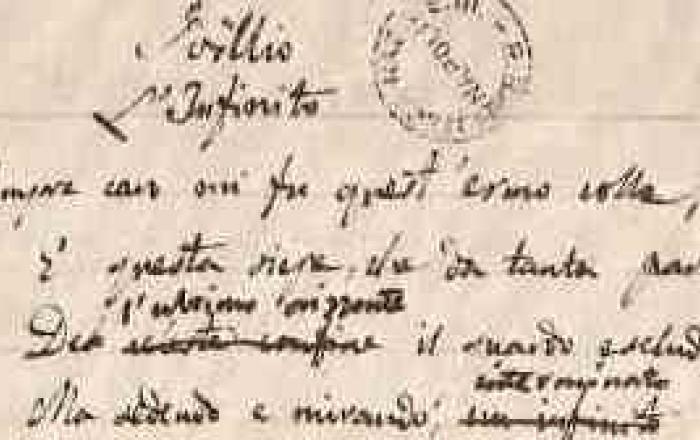 Idillio
L'Infinito
mpre caro mi fu quest'ermo colle,
E questa siepe, che da tanta par
l'ultimo orizzonte
De celeste confine il guardo esclud
interminato
Ma sedendo e mirando, un infinito